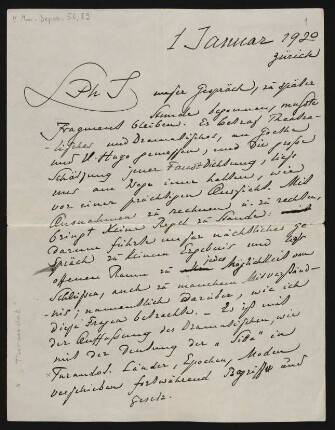 N. Mus. Depos. 56, 89
1
1 Januar 1920
Zürich
L Ph J unser Gespräch, zu später
Stunde begonnen, musste
Fragment bleiben. Es betraf Theatra-
-lisches und Dramatisches, an Goethe
und V. Hugo gemessen, und die große
Schätzung jener Faust Dichtung, liess
uns am Wege inne halten, wie
vor einer prächtigen Aussicht. Mit
Ausnahmen zu rechnen u. zu rechten,
bringt keine Regel zu Stande:
darum führte unser nächtliches Ge-
spräch zu keinem Ergebnis und liess
offenen Raum zu jeder Möglichkeit von
Schlüssen, auch zu manchem Missverständ-
nis; namentlich darüber, wie ich
diese Fragen betrachte. - Es ist mit
der Auffassung des Dramatischen, wie
mit der Deutung der "Sitte" in
Turandot. Länder, Epochen, Moden
verschieben fortwährend Begriff und
Gesetz.